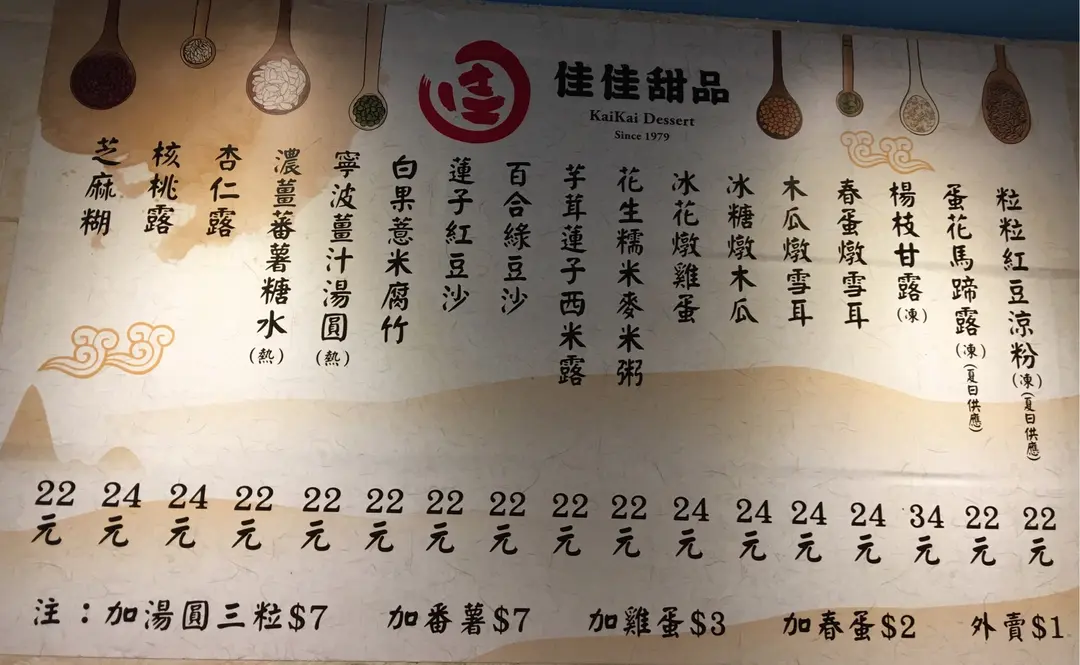 佳
佳佳甜品
KaiKai Dessert
Since 1979
粒粒紅豆涼粉(凍)(夏日供應)
22元
蛋花馬蹄露(凍)(夏日供應)
22元
楊枝甘露(凍)
34元
春蛋燉雪耳
24元
木瓜燉雪耳
24元
冰糖燉木瓜
24元
冰花燉雞蛋
24元
花生糯米麥米粥
22元
芋茸蓮子西米露
22元
百合綠豆沙
22元
蓮子紅豆沙
22元
白果薏米腐竹
22元
寧波薑汁湯圓(熱)
22元
濃薑蕃薯糖水(熱)
22元
杏仁露
24元
核桃露
24元
芝麻糊
22元
注：加湯圓三粒$7 加番薯$7 加雞蛋$3 加春蛋$2 外賣$1